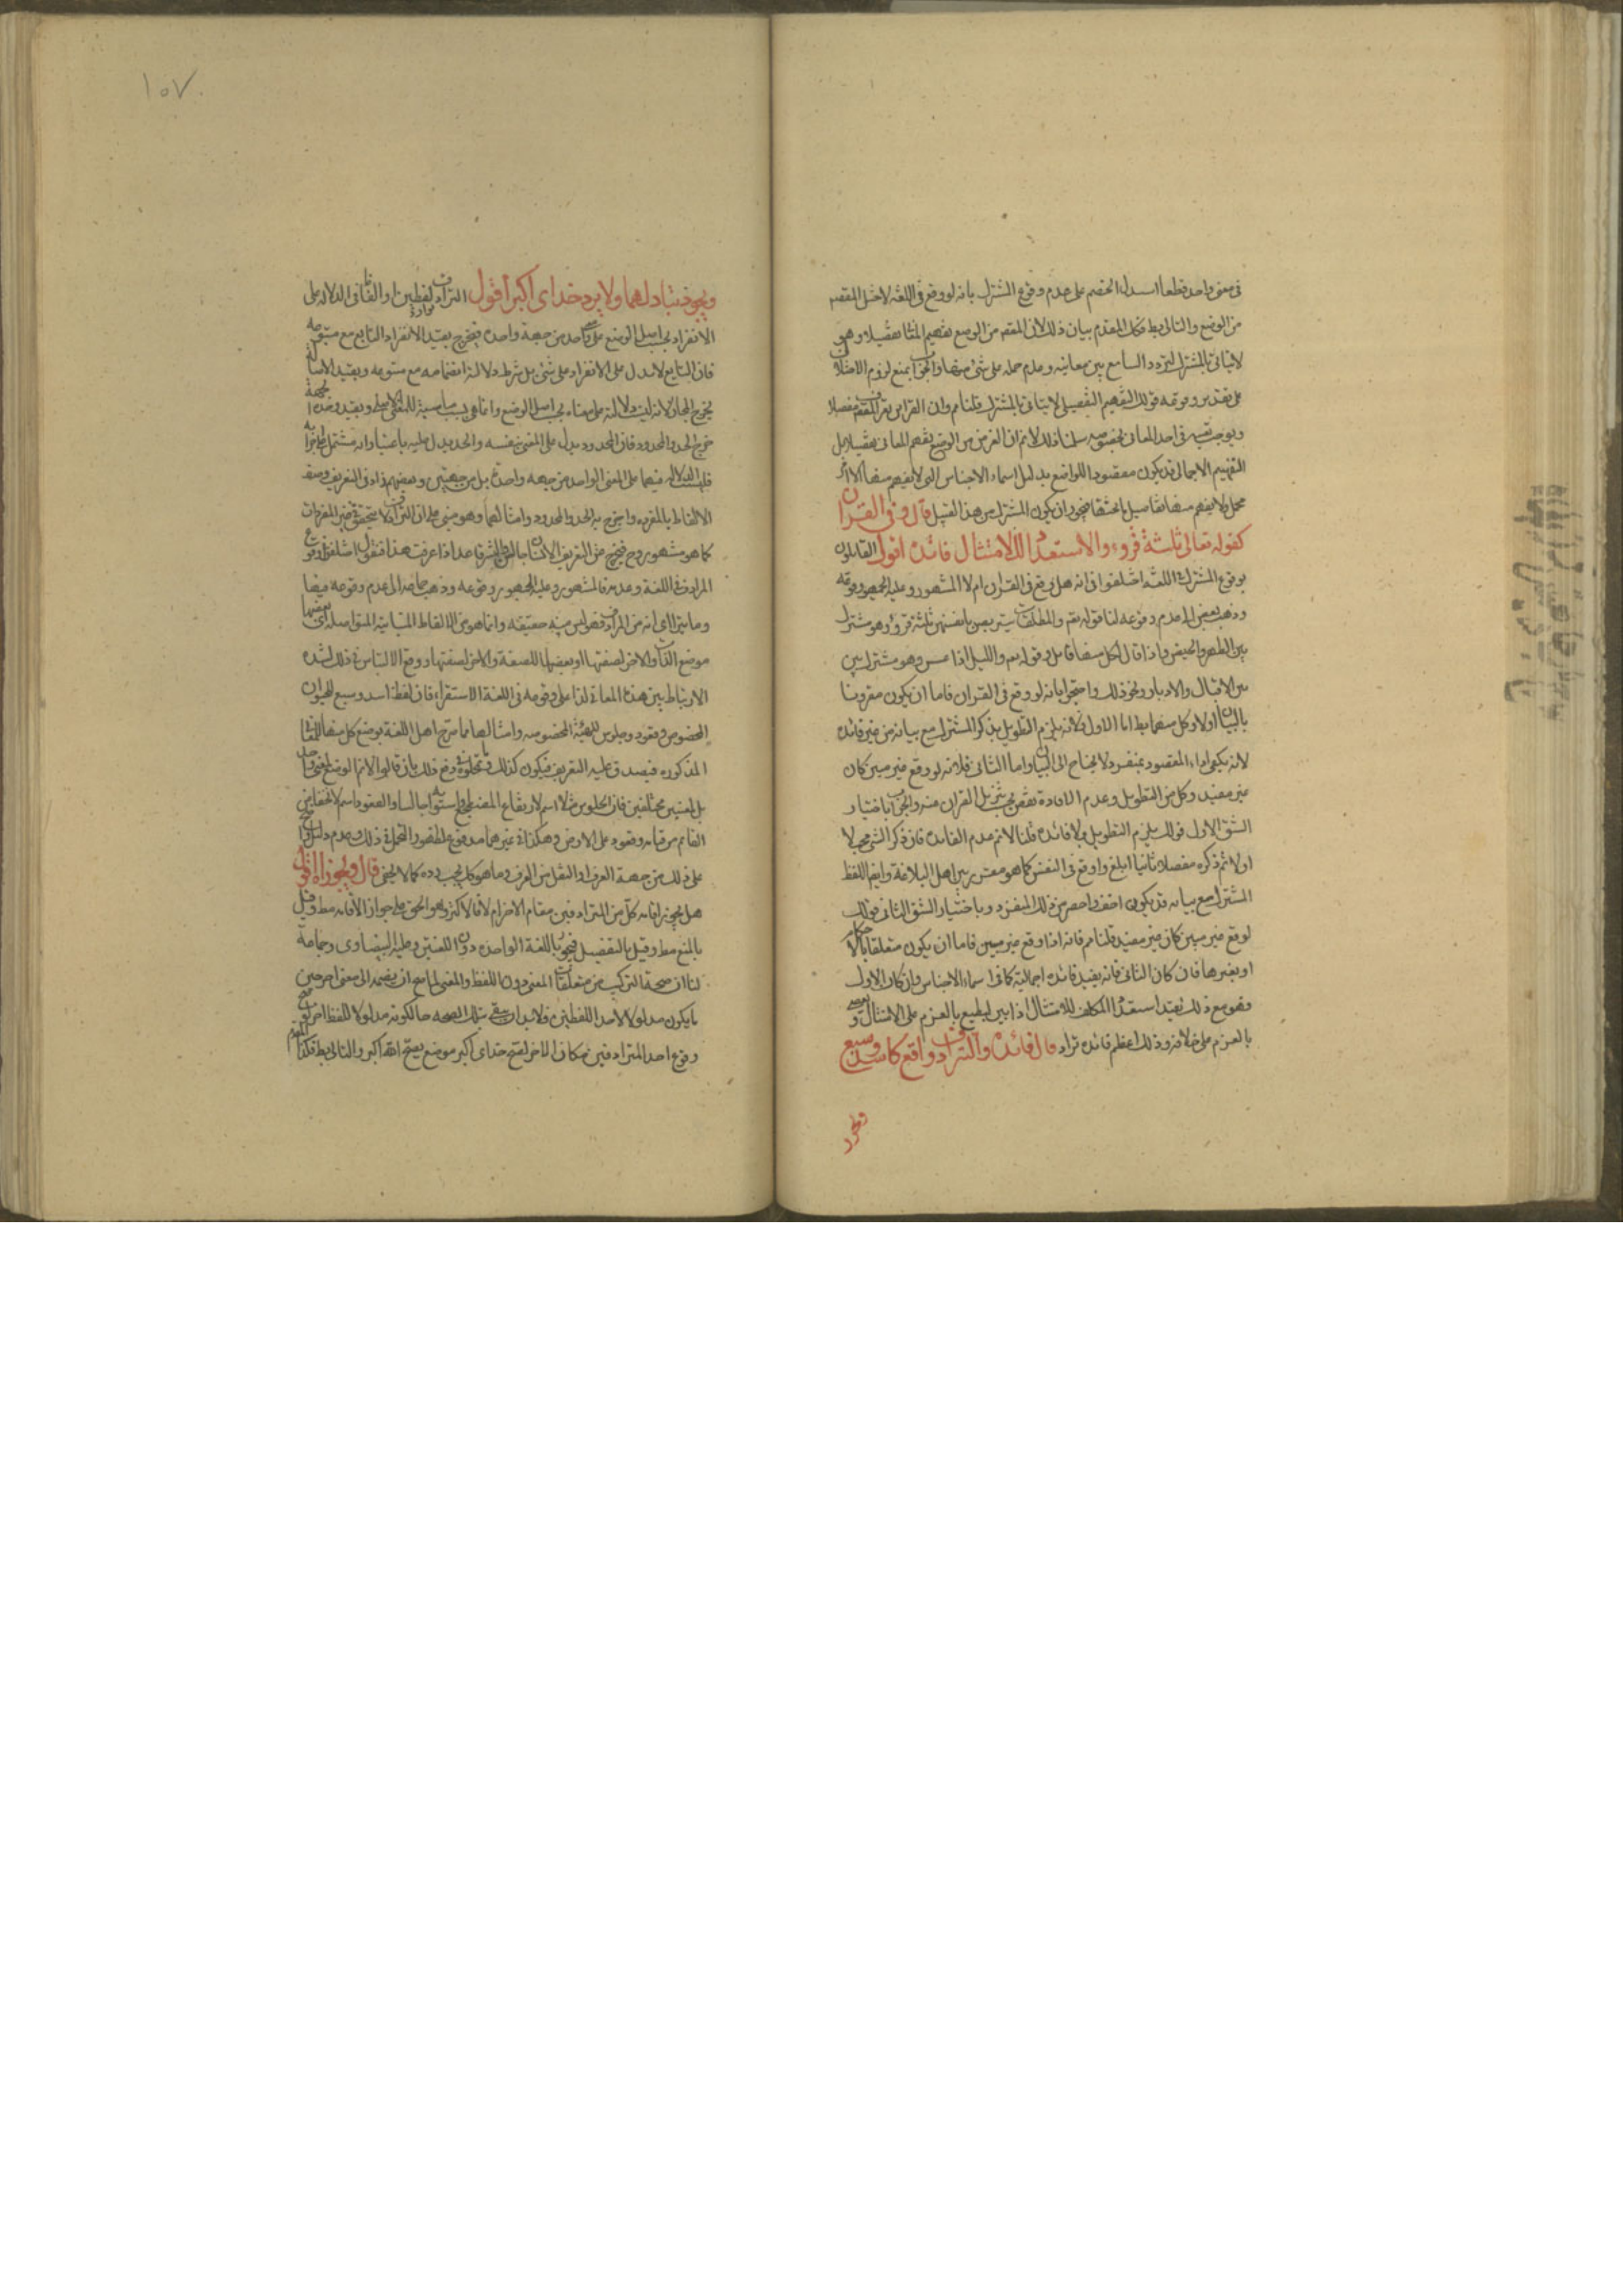 فى معنى واحد قطعا استدل الخصم على عدم وقوع المشترك بانه لو وقع فى اللغة لاختل المقصد
من الوضع والتالى بط فكذا المقدم بيان ذلك لان المقصد من الوضع تفهيم المعانى تفصيلا وهو
لا يتأتى بالمشترك لتردد السامع بين معانيه وعدم حمله على شئ منها والجواب بمنع لزوم الاختلال
على تقدير وقوعه قولك التفهيم التفصيلى لا يتأتى بالمشترك قلنا نعم وان القراين تعرف المقصد مفصلا
ويوجب تعينه فى احد المعانى بخصوصه سلمنا ذلك لا نم ان الغرض من الوضع تفهيم المعانى تفصيلا بل
التفهيم الاجمالى قد يكون مقصودا للواضع بدليل اسماء الاجناس التى لا يفهم منها الا امر
مجمل ولا يفهم منها تفاصيل ما تحتها فيجوز ان يكون المشترك من هذا القبيل قال وفى القرآن
كقوله تعالى ثلثة قروء والاستعداد للامتثال فائدة اقول القايلون
بوقوع المشترك فى اللغة اختلفوا فى انه هل وقع فى القران ام لا المشهور وعليه الجمهور وقوعه
وذهب بعض الى عدم وقوعه لنا قوله تعم والمطلقات يتربصن بانفسهن ثلثة قروء وهو مشترك
بين الطهر والحيض واذا قال لكل منها قايل وقوله تعم والليل اذا عسعس وهو مشترك بين
بين الاقبال والادبار ونحو ذلك واحتجوا بانه لو وقع فى القران فاما ان يكون مقرونا
بالبيان اولا وكل منهما بط اما الاول فلانه يلزم التطويل بذكر المشترك مع بيانه من غير فائدة
لانه يكفى اداء المقصود بمنفرد لا يحتاج الى البيان واما الثانى فلانه لو وقع غير مبين كان
غير مفيد وكل من التطويل وعدم الافادة نقص يجب تنزيه القران عنه والجواب باختيار
الشق الاول قولك يلزم التطويل ولا فائدة قلنا لا نم عدم الفائدة فان ذكر الشئ مجملا
اولا ثم ذكره مفصلا ثانيا ابلغ واوقع فى النفس كما هو مقرر بين اهل البلاغة وايضا اللفظ
المشترك مع بيانه قد يكون اخف واحصر من ذلك المنفرد وباختيار الشق الثانى قولك
لو وقع غير مبين كان غير مفيد قلنا نعم فانه اذا وقع غير مبين فاما ان يكون متعلقا بالاحكام
او بغيرها فان كان الثانى فانه يفيد فائدة اجمالية كما فى اسماء الاجناس وان كان الاول
فهو مع ذلك يفيد استعداد المكلف للامتثال اذا بين ليطيع بالعزم على الامتثال ويعصى
بالعزم على خلافه وذلك اعظم فائدة تراد قال فائدة والترادف واقع كاسد وسبع
ويجوز تبادلهما ولا يرد خداى اكبر اقول الترادف توارد لفظين او الفاظ فى الدلالة على
الانفراد بحسب اصل الوضع على معنى واحد من جهة واحدة فيخرج بقيد الانفراد التابع مع متبوعه
فان التابع لا يدل على الانفراد على شئ بل شرط دلالته انضمامه مع متبوعه وبقيد الاصالة
يخرج المجاز لانه ليست دلالته على معناه بحسب اصل الوضع وانما هى بسبب مناسبة للمعنى الاصلى وبقيد وحدة الجهة
خرج الحد والمحدود فان المحدود يدل على المعنى بنفسه والحد يدل عليه باعتبار انه مشتمل على اجزائه
فليست الدلالة فيهما على المعنى الواحد من جهة واحدة بل من جهتين وبعضهم زاد فى التعريف وصف
الالفاظ بالمفردة واخرج به الحد والمحدود وامثالهما وهو مبنى على ان الترادف لا يتحقق فى غير المفردات
كما هو مشهور وح فيخرج عن التعريف الانسان جالس والبشر قاعد اذا عرفت هذا فنقول اختلفوا فى وقوع
المرادف فى اللغة وعدمه فالمشهور وعليه الجمهور وقوعه وذهب جماعة الى عدم وقوعه فيها
وما يترااى انه من المرادف فهو ليس منه حقيقة وانما هو من الالفاظ المتباينة المتواصلة اى بعضها
موضع الذات والاخر لصفتها او بعضها للصفة والاخر لصفتها ووقع الالتباس فى ذلك لشدة
الارتباط بين هذه المعانى لنا على وقوعه فى اللغة الاستقراء فان لفظ اسد وسبع للحيوان
المخصوص وقعود وجلوس للهيئة المخصوصة وامثالهما مما صرح اهل اللغة بوضع كل منها للمعانى
المذكورة فيصدق عليه التعريف فيكون كذلك
بل لمعنيين مختلفين فان الجلوس مثلا اسم لارتفاع المضطجع واستوائه جالسا والقعود اسم لانخفاض
القائم من قيامه وقعوده على الارض وهكذا فى غيرهما مدفوع بالظهور والتمحل فى ذلك وعدم دليل واضح
على ذلك من جهة العرف او النقل من العرف وما هو كل يجب رده كما لا يخفى قال ويجوز اه اقول
هل يجوز اقامة كل من المترادفين مقام الاخر ام لا قال الاكثر وهو الحق على جواز الاقامة مط وقيل
بالمنع مط وقيل بالتفصيل فيجوز باللغة الواحدة دون اللغتين وعليه البيضاوى وجماعة
لنا ان صحة التركيب من متعلقات المعنى دون اللفظ والمعنى لما صح ان يضم الى معنى اخر حين
ما يكون مدلولا لاحد اللفظين فلا بد ان يبقى تلك الصحة حالكونه مدلولا للفظ اخر
وقوع احد المترادفين مكان الاخر لصح خداى اكبر موضع يصح الله اكبر والتالى بط فكذا المقدم
١٠٧